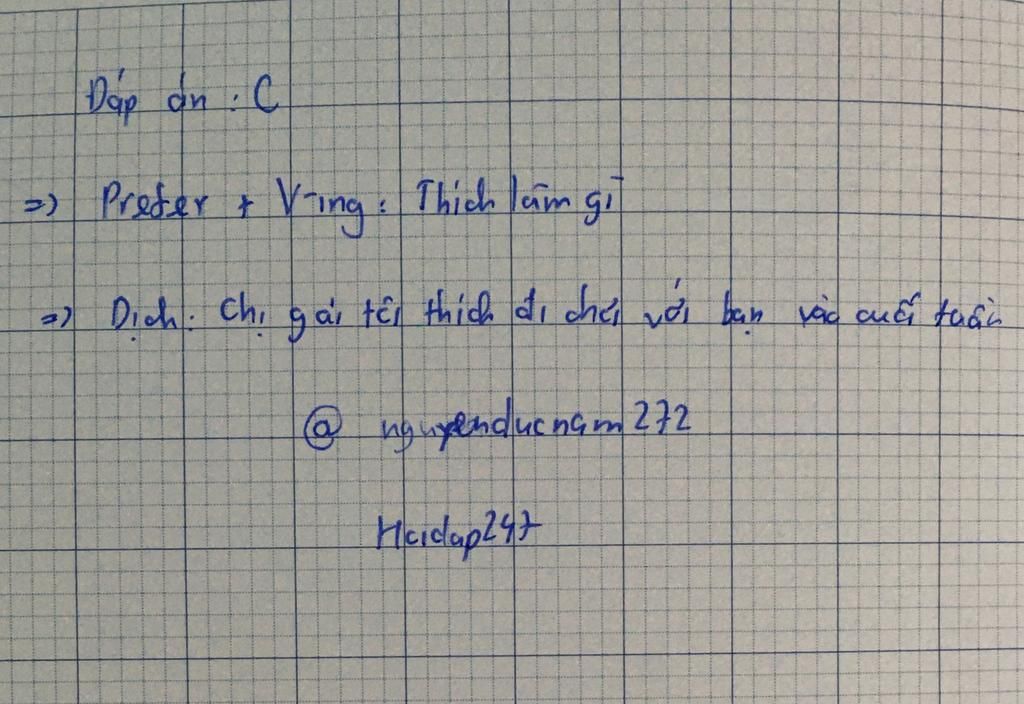 Đáp án : C
=> Prefer + V-ing : Thích làm gì
=> Dịch : Chị gái tôi thích đi chơi với bạn vào cuối tuần
@ nguyenducnam272
Hoidap247